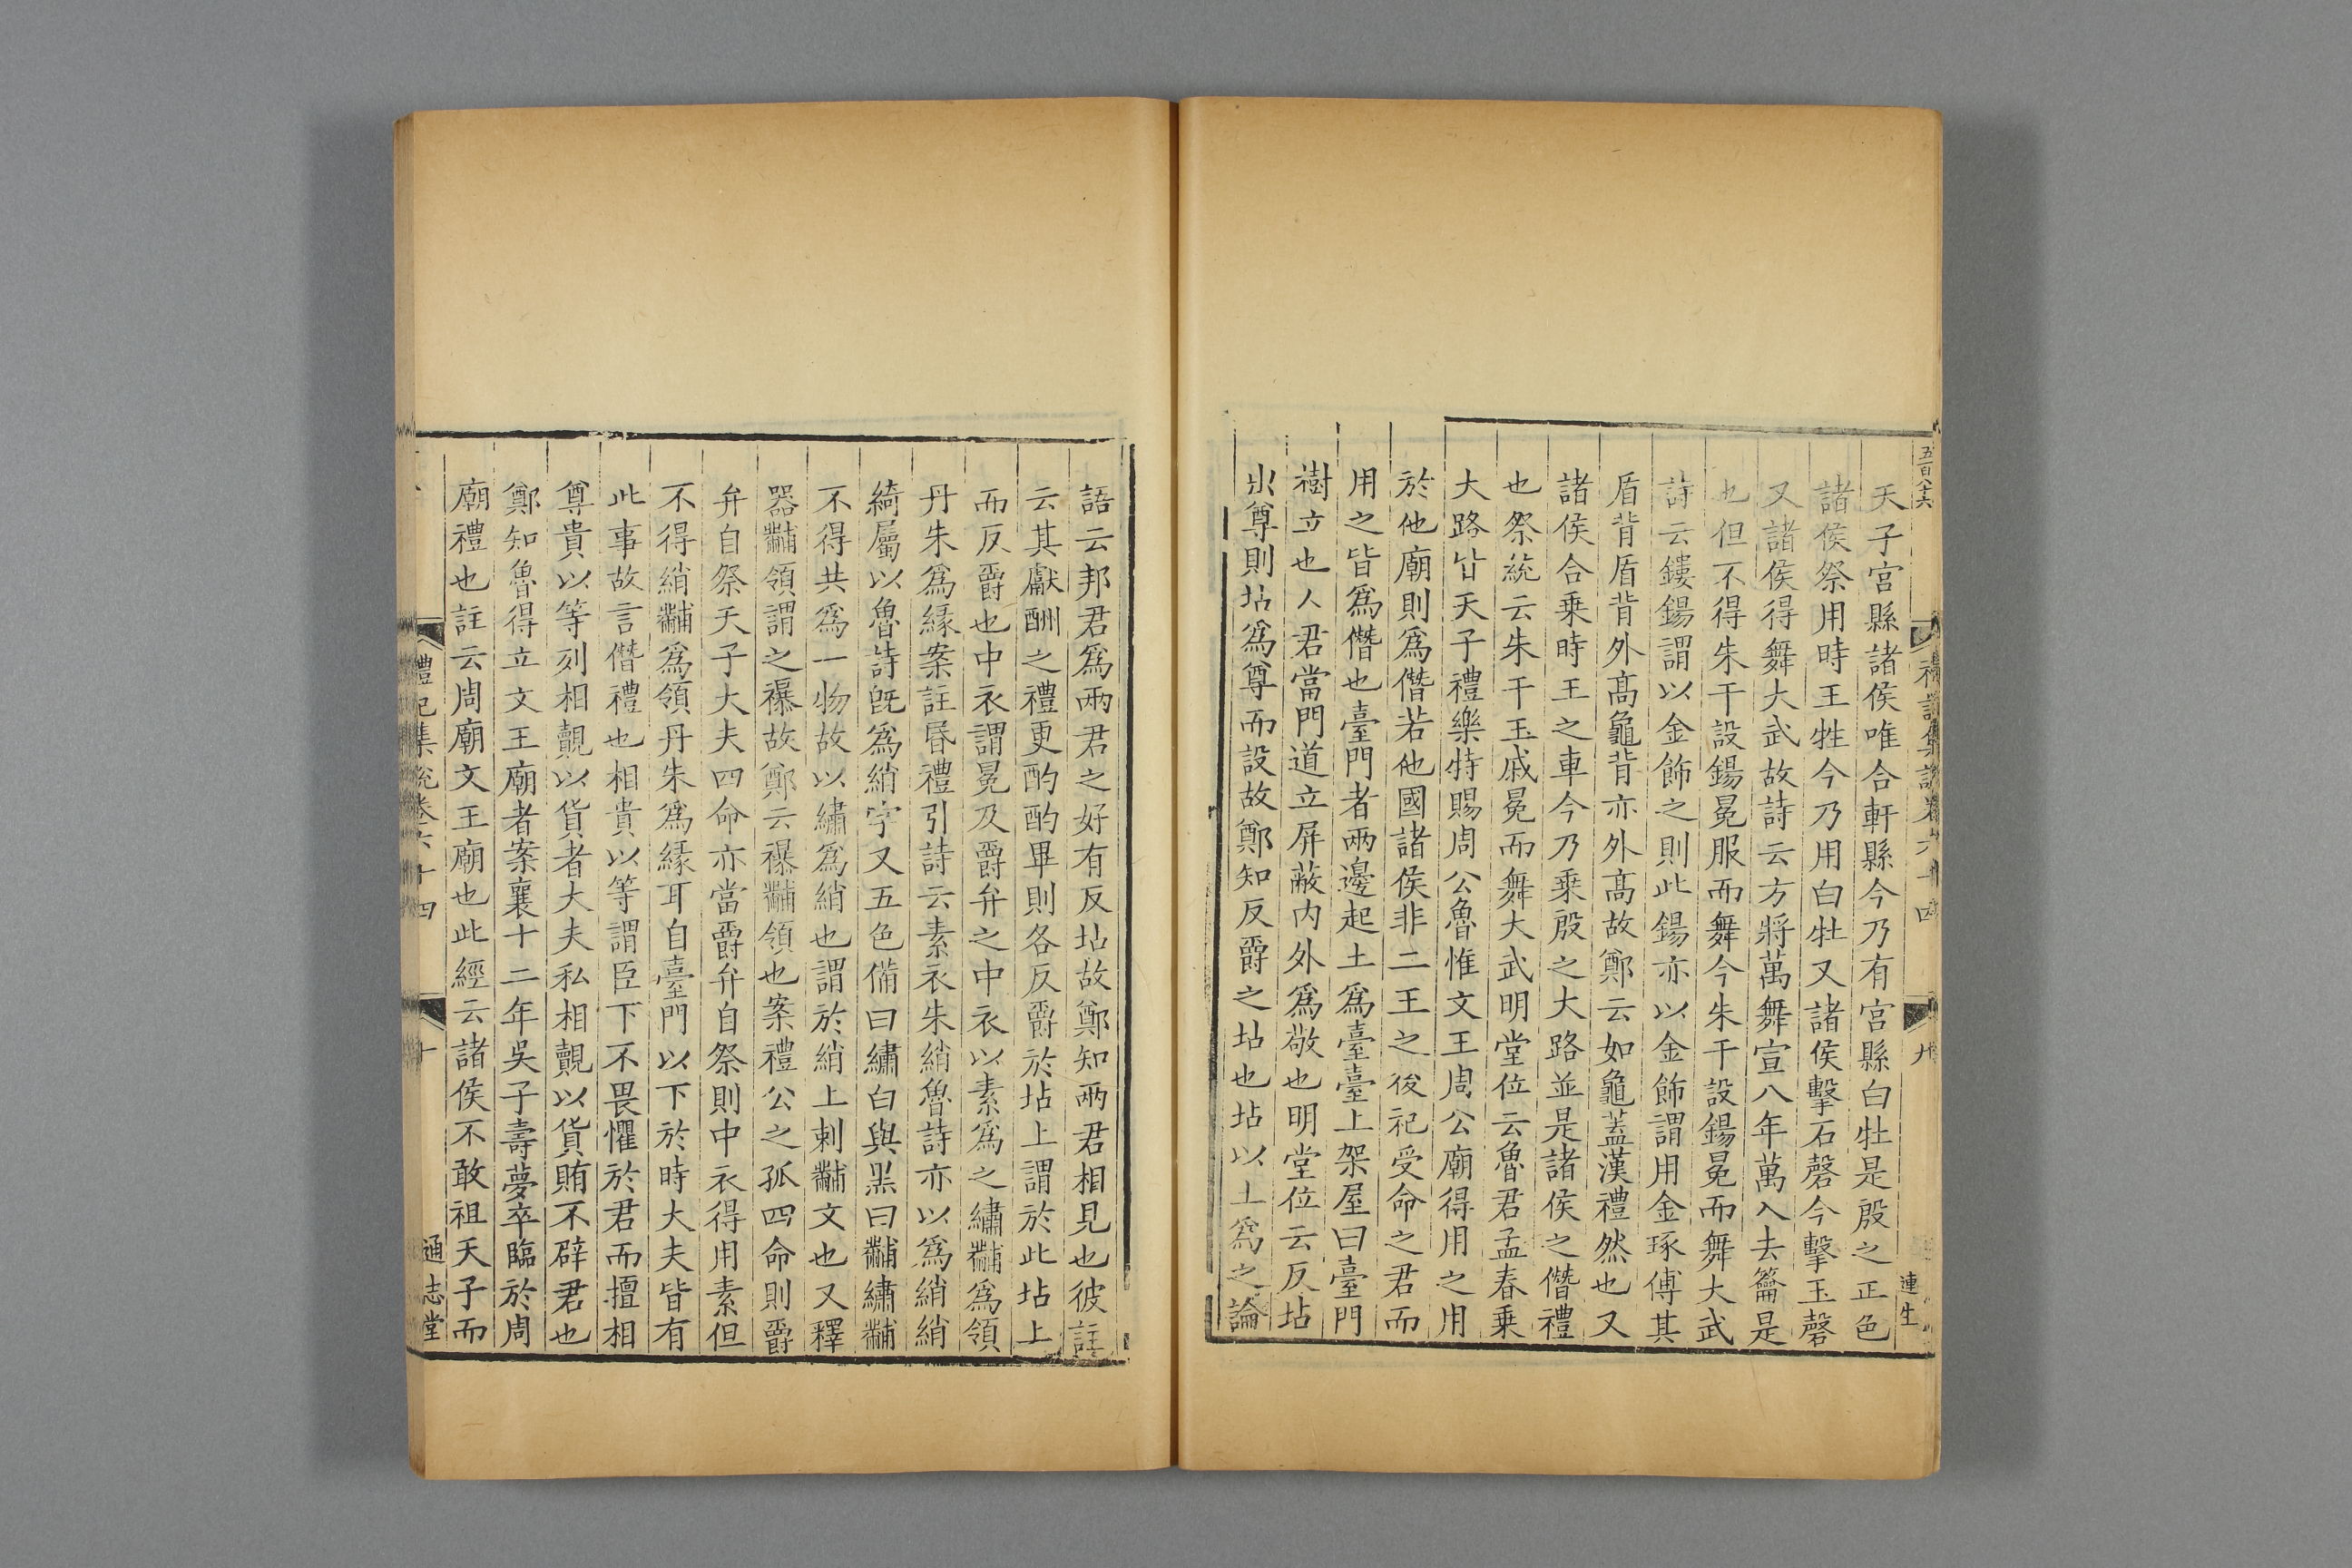 五百八十六
禮記集說卷六十四
九
連生
天子宮縣諸侯唯合軒縣今乃有宮縣白牡是殷之正色
諸侯祭用時王牲今乃用白牡又諸侯擊石磬今擊玉磬
又諸侯得舞大武故詩云方將萬舞宣八年萬入去籥是
也但不得朱干設鍚冕服而舞今朱干設鍚冕而舞大武
詩云鏤鍚謂以金飾之則此鍚亦以金飾謂用金琢傅其
盾背盾背外高龜背亦外高故鄭云如龜蓋漢禮然也又
諸侯合乗時王之車今乃乗殷之大路並是諸侯之僭禮
也祭統云朱干玉戚冕而舞大武明堂位云魯君孟春乗
大路廿天子禮樂特賜周公魯惟文王周公廟得用之用
於他廟則爲僭若他國諸侯非二王之後祀受命之君而
用之皆爲僭也臺門者兩邊起土爲臺臺上架屋曰臺門
樹立也人君當門道立屏蔽内外爲敬也明堂位云反坫
出尊則坫爲尊而設故鄭知反爵之坫也坫以土爲之論
語云邦君爲兩君之好有反坫故鄭知兩君相見也彼註
云其獻酬之禮更酌酌畢則各反爵於坫上謂於此坫上
而反爵也中衣謂冕及爵弁之中衣以素爲之繡黼爲領
丹朱爲緣案註昏禮引詩云素衣朱綃魯詩亦以爲綃綃
綺屬以魯詩旣爲綃字又五色備曰繡白與黑曰黼繡黼
不得共爲一物故以繡爲綃也謂於綃上刺黼文也又釋
器黼領謂之襮故鄭云襮黼領也案禮公之孤四命則爵
弁自祭天子大夫四命亦當爵弁自祭則中衣得用素但
不得綃黼爲領丹朱爲緣耳自臺門以下於時大夫皆有
此事故言僭禮也相貴以等謂臣下不畏懼於君而擅相
尊貴以等列相覿以貨者大夫私相覿以貨賄不辟君也
鄭知魯得立文王廟者案襄十二年吳子壽夢卒臨於周
廟禮也註云周廟文王廟也此經云諸侯不敢祖天子而
禮記集說卷六十四
十
通志堂